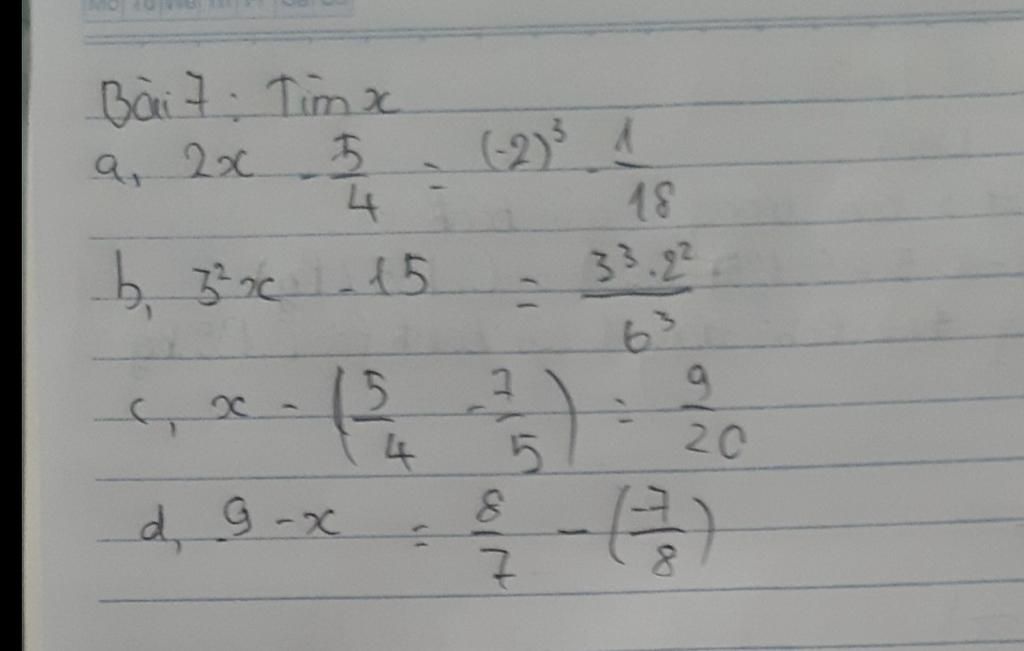 Bài 7: Tìm x
a, 2x - 5/4 = (-2)³ - 1/18
b, 3²x - 15 = 3³.2²/6³
c, x - (5/4 - 7/5) = 9/20
d, 9 - x = 8/7 - (-7/8)